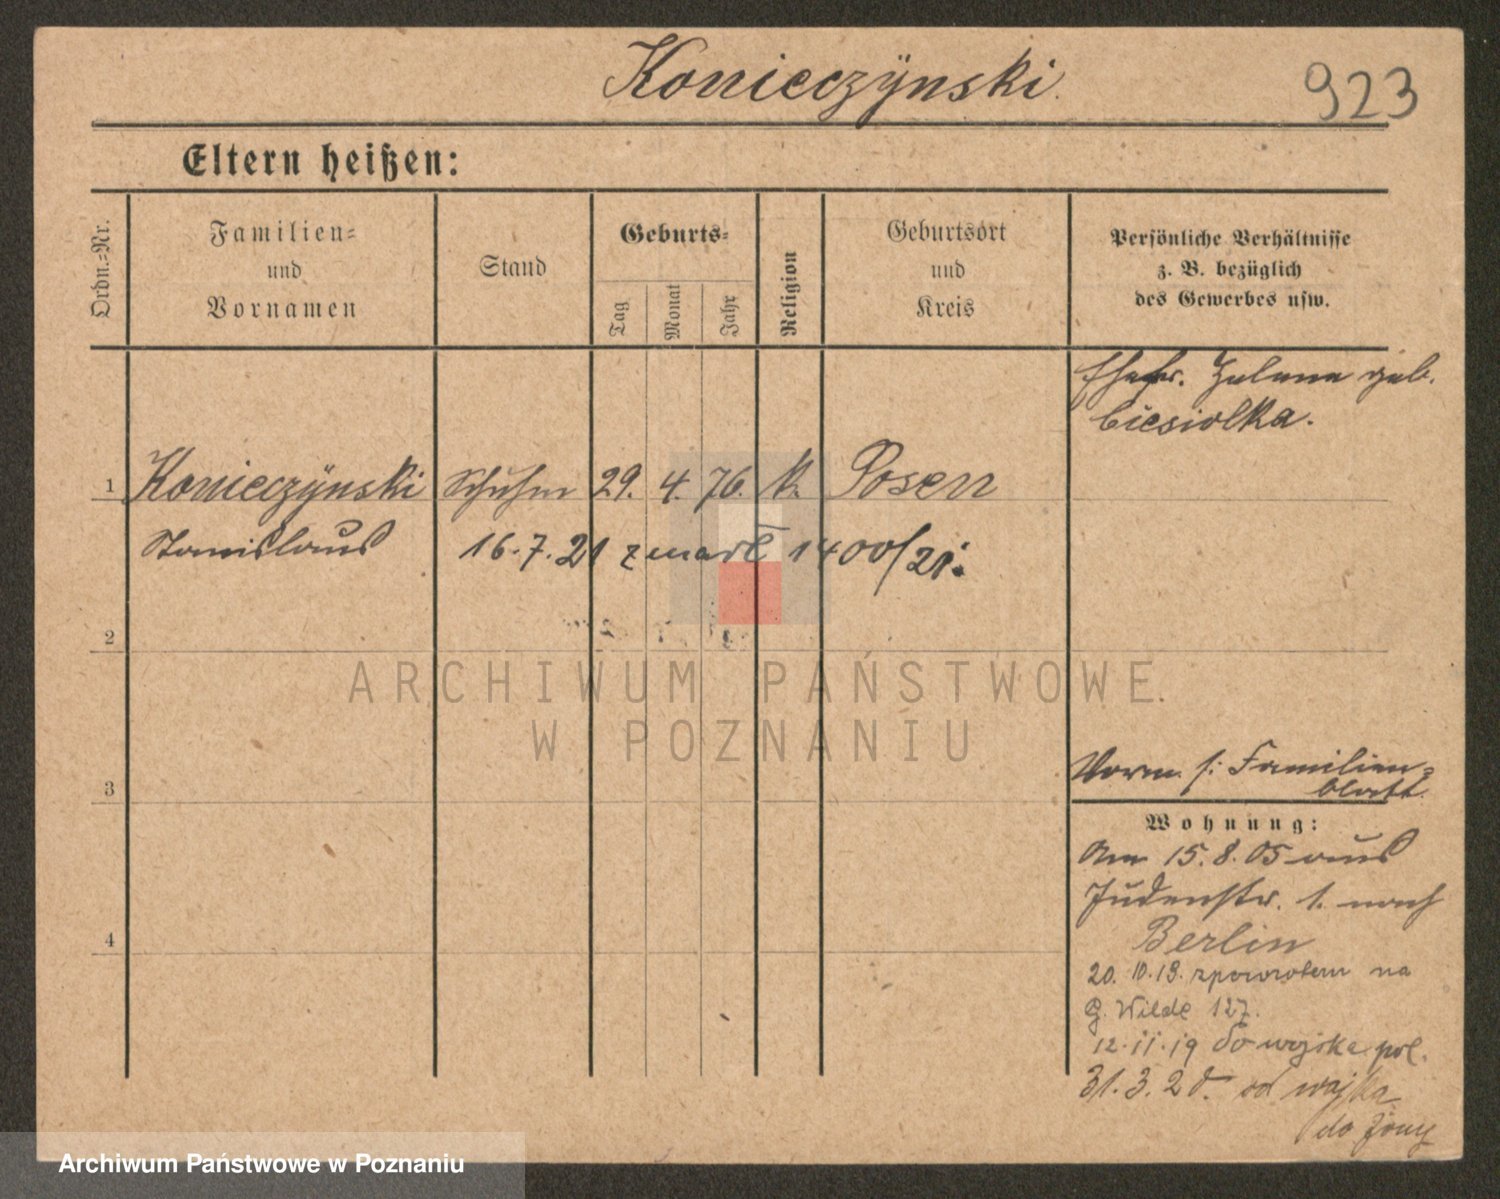 Konieczÿnski.
923
Eltern heißen:
Ordn.-Nr.
Familien-
und
Vornamen
Stand
Geburts-
Tag
Monat
Jahr
Religion
Geburtsort
und
Kreis
Persönliche Verhältnisse
z. B. bezüglich
des Gewerbes usw.
Ehefr. Helene geb.
Ciesiolka.
1 Konieczÿnski Schuhm 29. 4. 76. k. Posen
Stanislaus 16.7.21 zmarł 1400/21.
2
3
4
Verm. s: Familien-
blatt.
Wohnung:
Am 15.8.05 aus
Judenstr. 1. nach
Berlin
20. 10.19. zpowrotem na
G. Wilde 127.
12.11.19 do wojska pol.
31.3.20. od wojska
do żony
ARCHIWUM PAŃSTWOWE
W POZNANIU
Archiwum Państwowe w Poznaniu